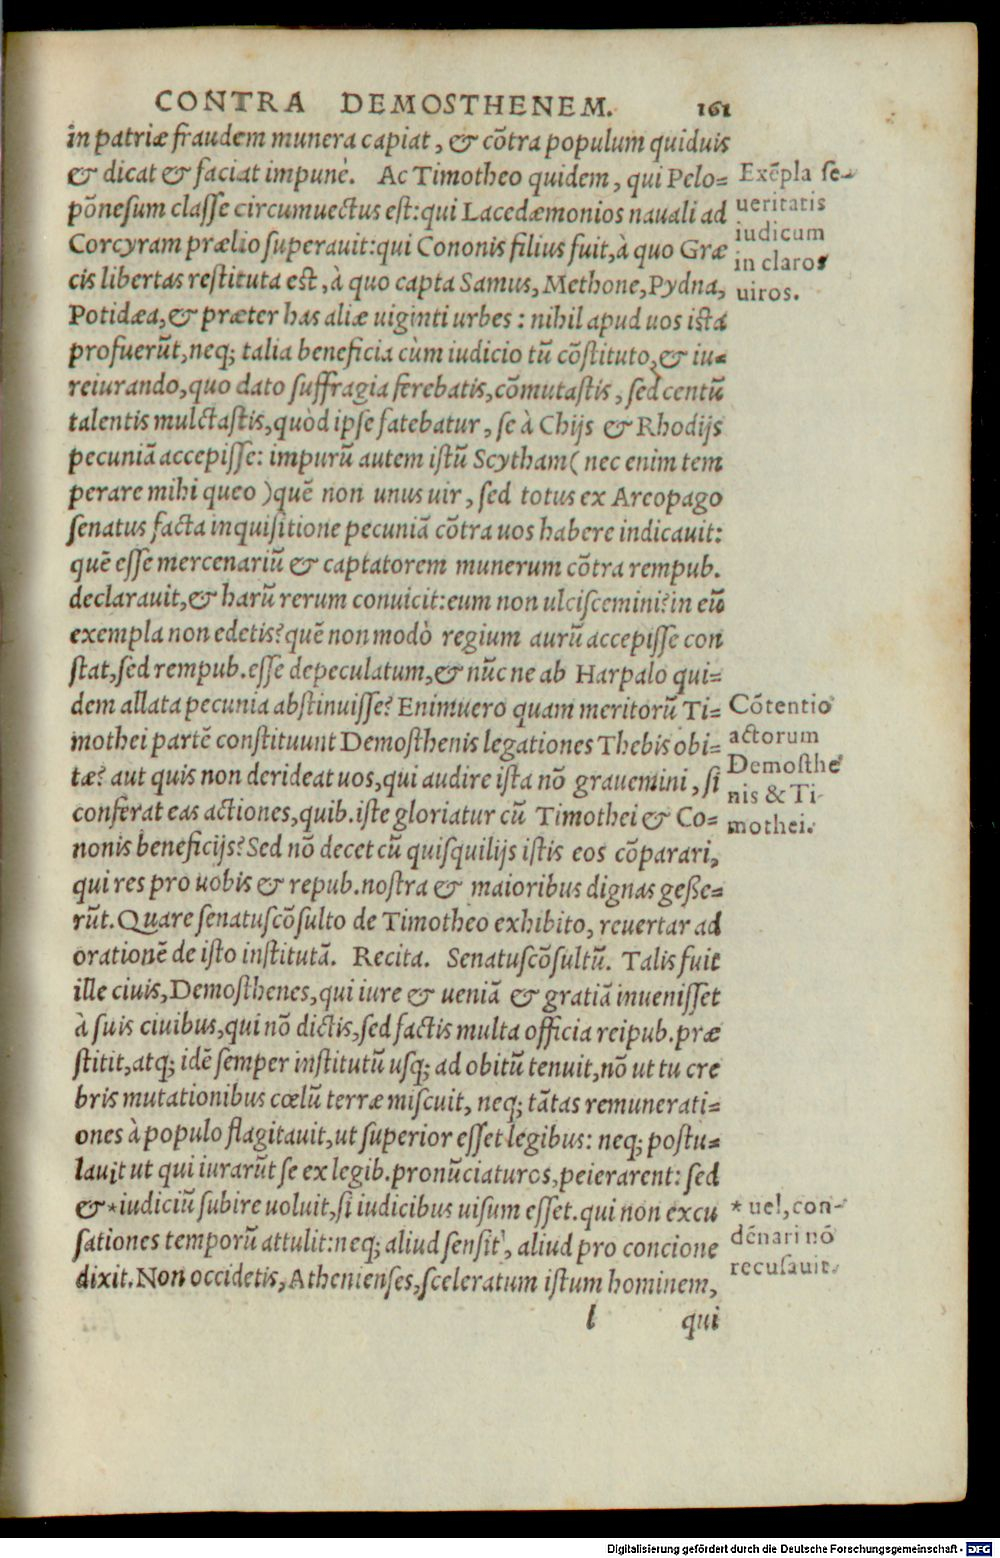 CONTRA DEMOSTHENEM. 161
in patriæ fraudem munera capiat, & cõtra populum quiduis
& dicat & faciat impunè. Ac Timotheo quidem, qui Pelo=
põnesum classe circumuectus est: qui Lacedæmonios nauali ad
Corcyram prælio superauit: qui Cononis filius fuit, à quo Græ
cis libertas restituta est, à quo capta Samus, Methone, Pydna,
Potidæa, & præter has aliæ uiginti urbes: nihil apud uos ista
profuerũt, neq; talia beneficia cùm iudicio tũ cõstituto, & iu=
reiurando, quo dato suffragia ferebatis, cõmutastis, sed centũ
talentis mulctastis, quòd ipse fatebatur, se à Chijs & Rhodijs
pecuniã accepisse: impurũ autem istũ Scytham (nec enim tem
perare mihi queo) quẽ non unus uir, sed totus ex Areopago
senatus facta inquisitione pecuniã cõtra uos habere indicauit:
quẽ esse mercenariũ & captatorem munerum cõtra rempub.
declarauit, & harũ rerum conuicit: eum non ulciscemini? in eũ
exempla non edetis? quẽ non modò regium aurũ accepisse con
stat, sed rempub. esse depeculatum, & nũc ne ab Harpalo qui=
dem allata pecunia abstinuisse? Enimuero quam meritorũ Ti=
mothei partẽ constituunt Demosthenis legationes Thebis obi=
tæ? aut quis non derideat uos, qui audire ista nõ grauemini, si
conferat eas actiones, quib. iste gloriatur cũ Timothei & Co=
nonis beneficijs? Sed nõ decet cũ quisquilijs istis eos cõparari,
qui res pro uobis & repub. nostra & maioribus dignas gesse=
rũt. Quare senatuscõsulto de Timotheo exhibito, reuertar ad
orationẽ de isto institutã. Recita. Senatuscõsultũ. Talis fuit
ille ciuis, Demosthenes, qui iure & ueniã & gratiã inuenisset
à suis ciuibus, qui nõ dictis, sed factis multa officia reipub. præ
stitit, atq; idẽ semper institutũ usq; ad obitũ tenuit, nõ ut tu cre
bris mutationibus cœlũ terræ miscuit, neq; tãtas remunerati=
ones à populo flagitauit, ut superior esset legibus: neq; postu=
lauit ut qui iurarũt se ex legib. pronũciaturos, peierarent: sed
& * iudiciũ subire uoluit, si iudicibus uisum esset. qui non excu
sationes temporũ attulit: neq; aliud sensit, aliud pro concione
dixit. Non occidetis, Athenienses, sceleratum istum hominem,
l qui
Exẽpla se-
ueritatis
iudicum
in claros
uiros.
Cõtentio
actorum
Demosthe
nis & Ti-
mothei.
* uel, con-
dẽnari nõ
recusauit.
Digitalisierung gefördert durch die Deutsche Forschungsgemeinschaft - DFG